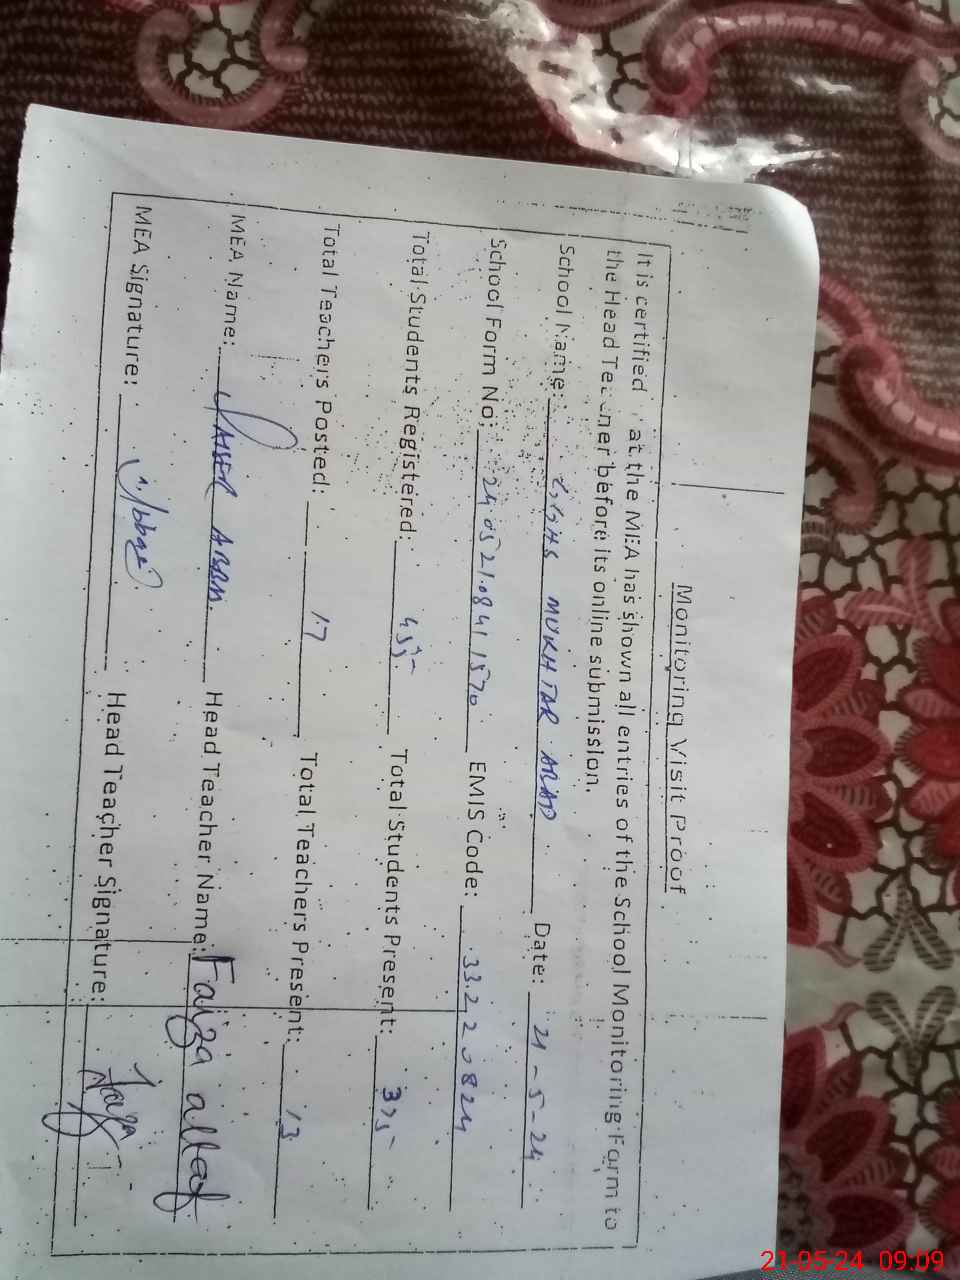 Monitoring Visit Proof
It is certified at the MEA has shown all entries of the School Monitoring Form to
the Head Teacher before its online submission.
School Name: GGHS MUKHTAR ABAD Date: 21-5-24
School Form No: 240521.0841 1570 EMIS Code: 33220824
Total Students Registered: Total Students Present: 375
Total Teachers Posted: 17 Total Teachers Present: 13
MEA Name: Head Teacher Name: Faiza altaf
MEA Signature: Head Teacher Signature: Faiza
21-05-24 09:09